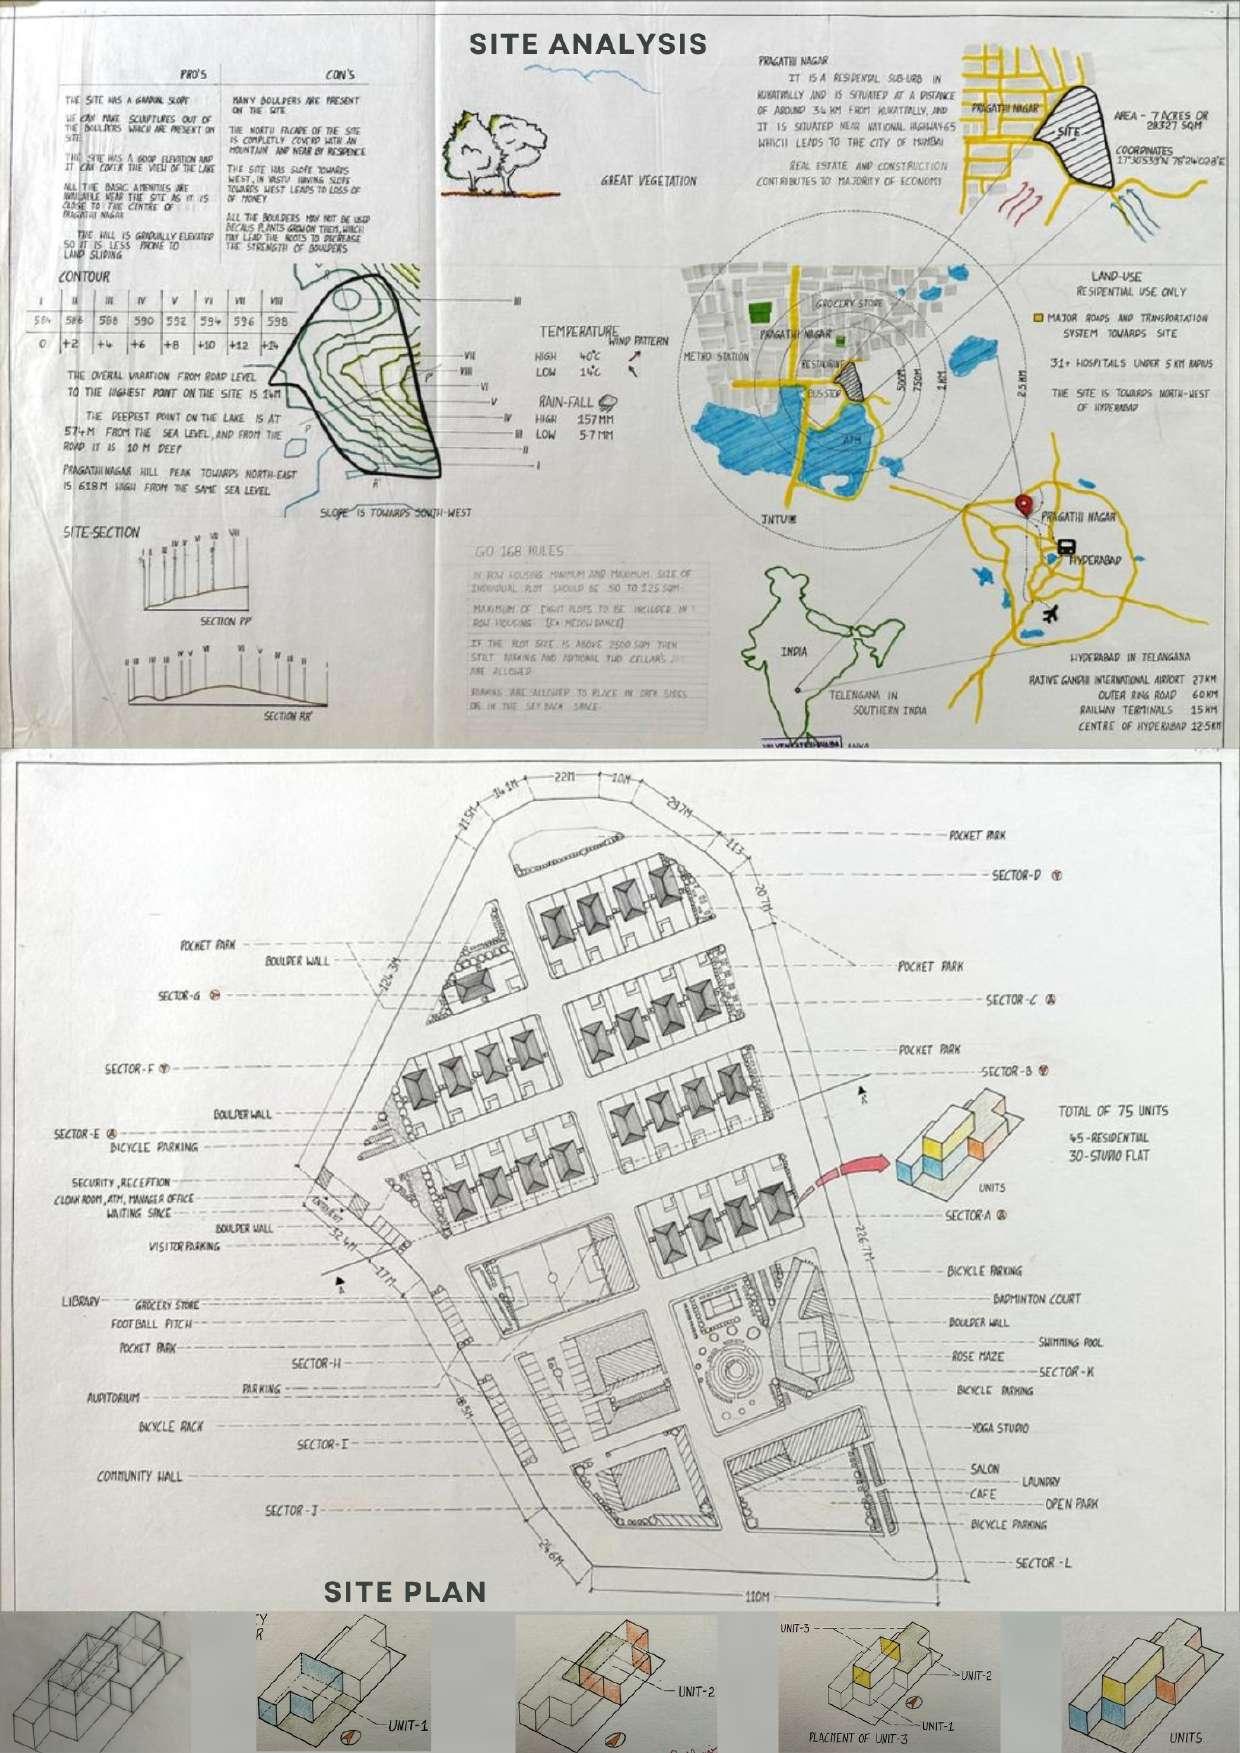 SITE ANALYSIS
PRO'S
CON'S
THE SITE HAS A GRADUAL SLOPE
WE CAN MAKE SCULPTURES OUT OF
THE BOULDERS WHICH ARE PRESENT ON
SITE
THE SITE HAS A GOOD ELEVATION AND
IT CAN COVER THE VIEW OF THE LAKE
ALL THE BASIC AMENITIES ARE
AVAILABLE NEAR THE SITE AS IT IS
CLOSE TO THE CENTRE OF
PRAGATHI NAGAR
THE HILL IS GRADUALLY ELEVATED
SO IT IS LESS PRONE TO
LAND SLIDING
MANY BOULDERS ARE PRESENT
ON THE SITE
THE NORTH FACADE OF THE SITE
IS COMPLETLY COVERD WITH AN
MOUNTAIN AND NEAR BY RESIDENCE
THE SITE HAS SLOPE TOWARDS
WEST, IN VASTU HAVING SLOPE
TOWARDS WEST LEADS TO LOSS OF
OF MONEY
ALL THE BOULDERS MAY NOT BE USED
BECAUS PLANTS GROW ON THEM, WHICH
MAY LEAD THE ROOTS TO DECREASE
THE STRENGTH OF BOULDERS
GREAT VEGETATION
PRAGATHI NAGAR
IT IS A RESIDENTAL SUB-URB IN
KUKATPALLY AND IS SITUATED AT A DISTANCE
OF AROUND 3.4 KM FROM KUKATPALLY, AND
IT IS SITUATED NEAR NATIONAL HIGHWAY 65
WHICH LEADS TO THE CITY OF MUMBAI
REAL ESTATE AND CONSTRUCTION
CONTRIBUTES TO MAJORITY OF ECONOMY
PRAGATHI NAGAR
SITE
AREA - 7 ACRES OR
28327 SQM
COORDINATES
CONTOUR
I II III IV V VI VII VIII
584 586 588 590 592 594 596 598
0 +2 +4 +6 +8 +10 +12 +14
THE OVERAL VARATION FROM ROAD LEVEL
TO THE HIGHEST POINT ON THE SITE IS 14M
THE DEEPEST POINT ON THE LAKE IS AT
574M FROM THE SEA LEVEL, AND FROM THE
ROAD IT IS 10 M DEEP
PRAGATHI NAGAR HILL PEAK TOWARDS NORTH-EAST
IS 618M HIGH FROM THE SAME SEA LEVEL
III
VII
VIII
VI
V
IV
III
II
I
SLOPE IS TOWARDS SOUTH-WEST
TEMPERATURE
WIND PATTERN
HIGH 40°C
LOW 14°C
RAIN-FALL
HIGH 157 MM
LOW 5.7 MM
GROCERY STORE
PRAGATHI NAGAR
METRO STATION
RESTAURANT
BUS STOP
ATM
500M
750M
1 KM
2.5 KM
JNTUH
LAND-USE
RESIDENTIAL USE ONLY
MAJOR ROADS AND TRANSPORTATION
SYSTEM TOWARDS SITE
31+ HOSPITALS UNDER 5 KM RADIUS
THE SITE IS TOWARDS NORTH-WEST
OF HYDERABAD
PRAGATHI NAGAR
HYDERABAD
SITE-SECTION
SECTION PP'
SECTION RR'
GO 168 RULES
IN ROW HOUSING MINIMUM AND MAXIMUM SIZE OF
INDIVIDUAL PLOT SHOULD BE 50 TO 125 SQM.
MAXIMUM OF EIGHT PLOTS TO BE INCLUDED IN 1
ROW HOUSING
IF THE PLOT SIZE IS ABOVE 2500 SQM THEN
STILT PARKING AND ADTIONAL TWO CELLAR'S
ARE ALLOWED
PARKING ARE ALLOWED TO PLACE IN OPEN SIDES
OR IN THE SET BACK SPACE
INDIA
TELENGANA IN
SOUTHERN INDIA
HYDERABAD IN TELANGANA
RAJIVE GANDHI INTERNATIONAL AIRPORT 27 KM
OUTER RING ROAD 60 KM
RAILWAY TERMINALS 15 KM
CENTRE OF HYDERABAD 12.5KM
22M
10M
14.1M
11.5M
29.7M
11.3
20.7M
124.3M
POCKET PARK
SECTOR-D
POCKET PARK
BOULDER WALL
POCKET PARK
SECTOR-G
SECTOR-C
POCKET PARK
SECTOR-F
SECTOR-B
BOULDER WALL
TOTAL OF 75 UNITS
45-RESIDENTIAL
30-STUDIO FLAT
SECTOR-E
BICYCLE PARKING
SECURITY, RECEPTION
CLOAK ROOM, ATM, MANAGER OFFICE
WAITING SPACE
UNITS
BOULDER WALL
SECTOR-A
VISITOR PARKING
ENTRY/EXIT
32.4M
17M
226.7M
BICYCLE PARKING
LIBRARY
GROCERY STORE
BADMINTON COURT
FOOTBALL PITCH
BOULDER WALL
POCKET PARK
SWIMMING POOL
ROSE MAZE
SECTOR-H
SECTOR-K
PARKING
BICYCLE PARKING
AUDITORIUM
BICYCLE RACK
YOGA STUDIO
SECTOR-I
SALON
COMMUNITY HALL
LAUNDRY
CAFE
OPEN PARK
SECTOR-J
BICYCLE PARKING
24.6M
SECTOR-L
SITE PLAN
110M
UNIT-1
UNIT-2
UNIT-3
UNIT-2
UNIT-1
PLACMENT OF UNIT-3
UNITS